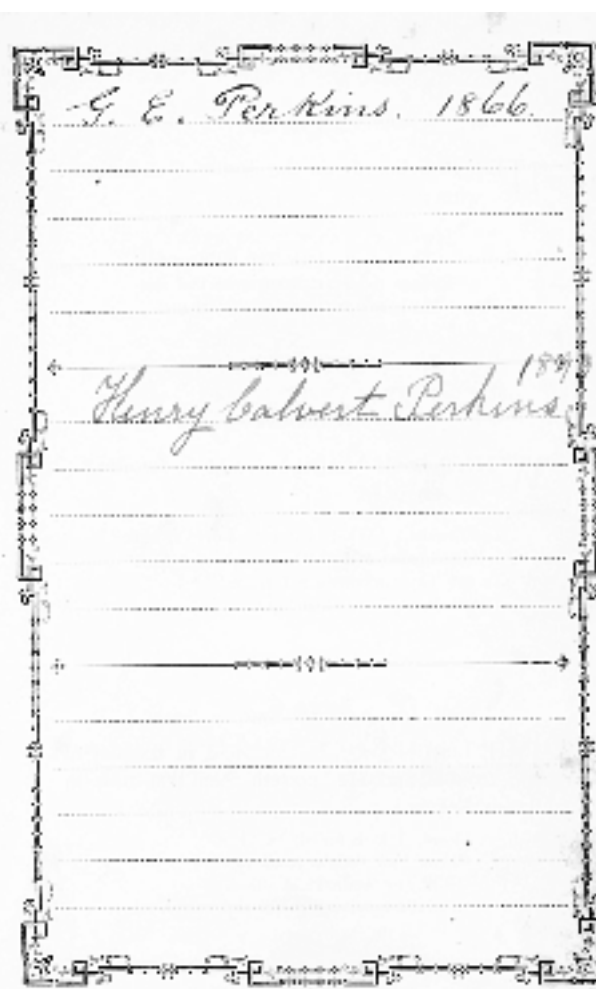 G. E. Perkins. 1866.
Henry Calvert Perkins